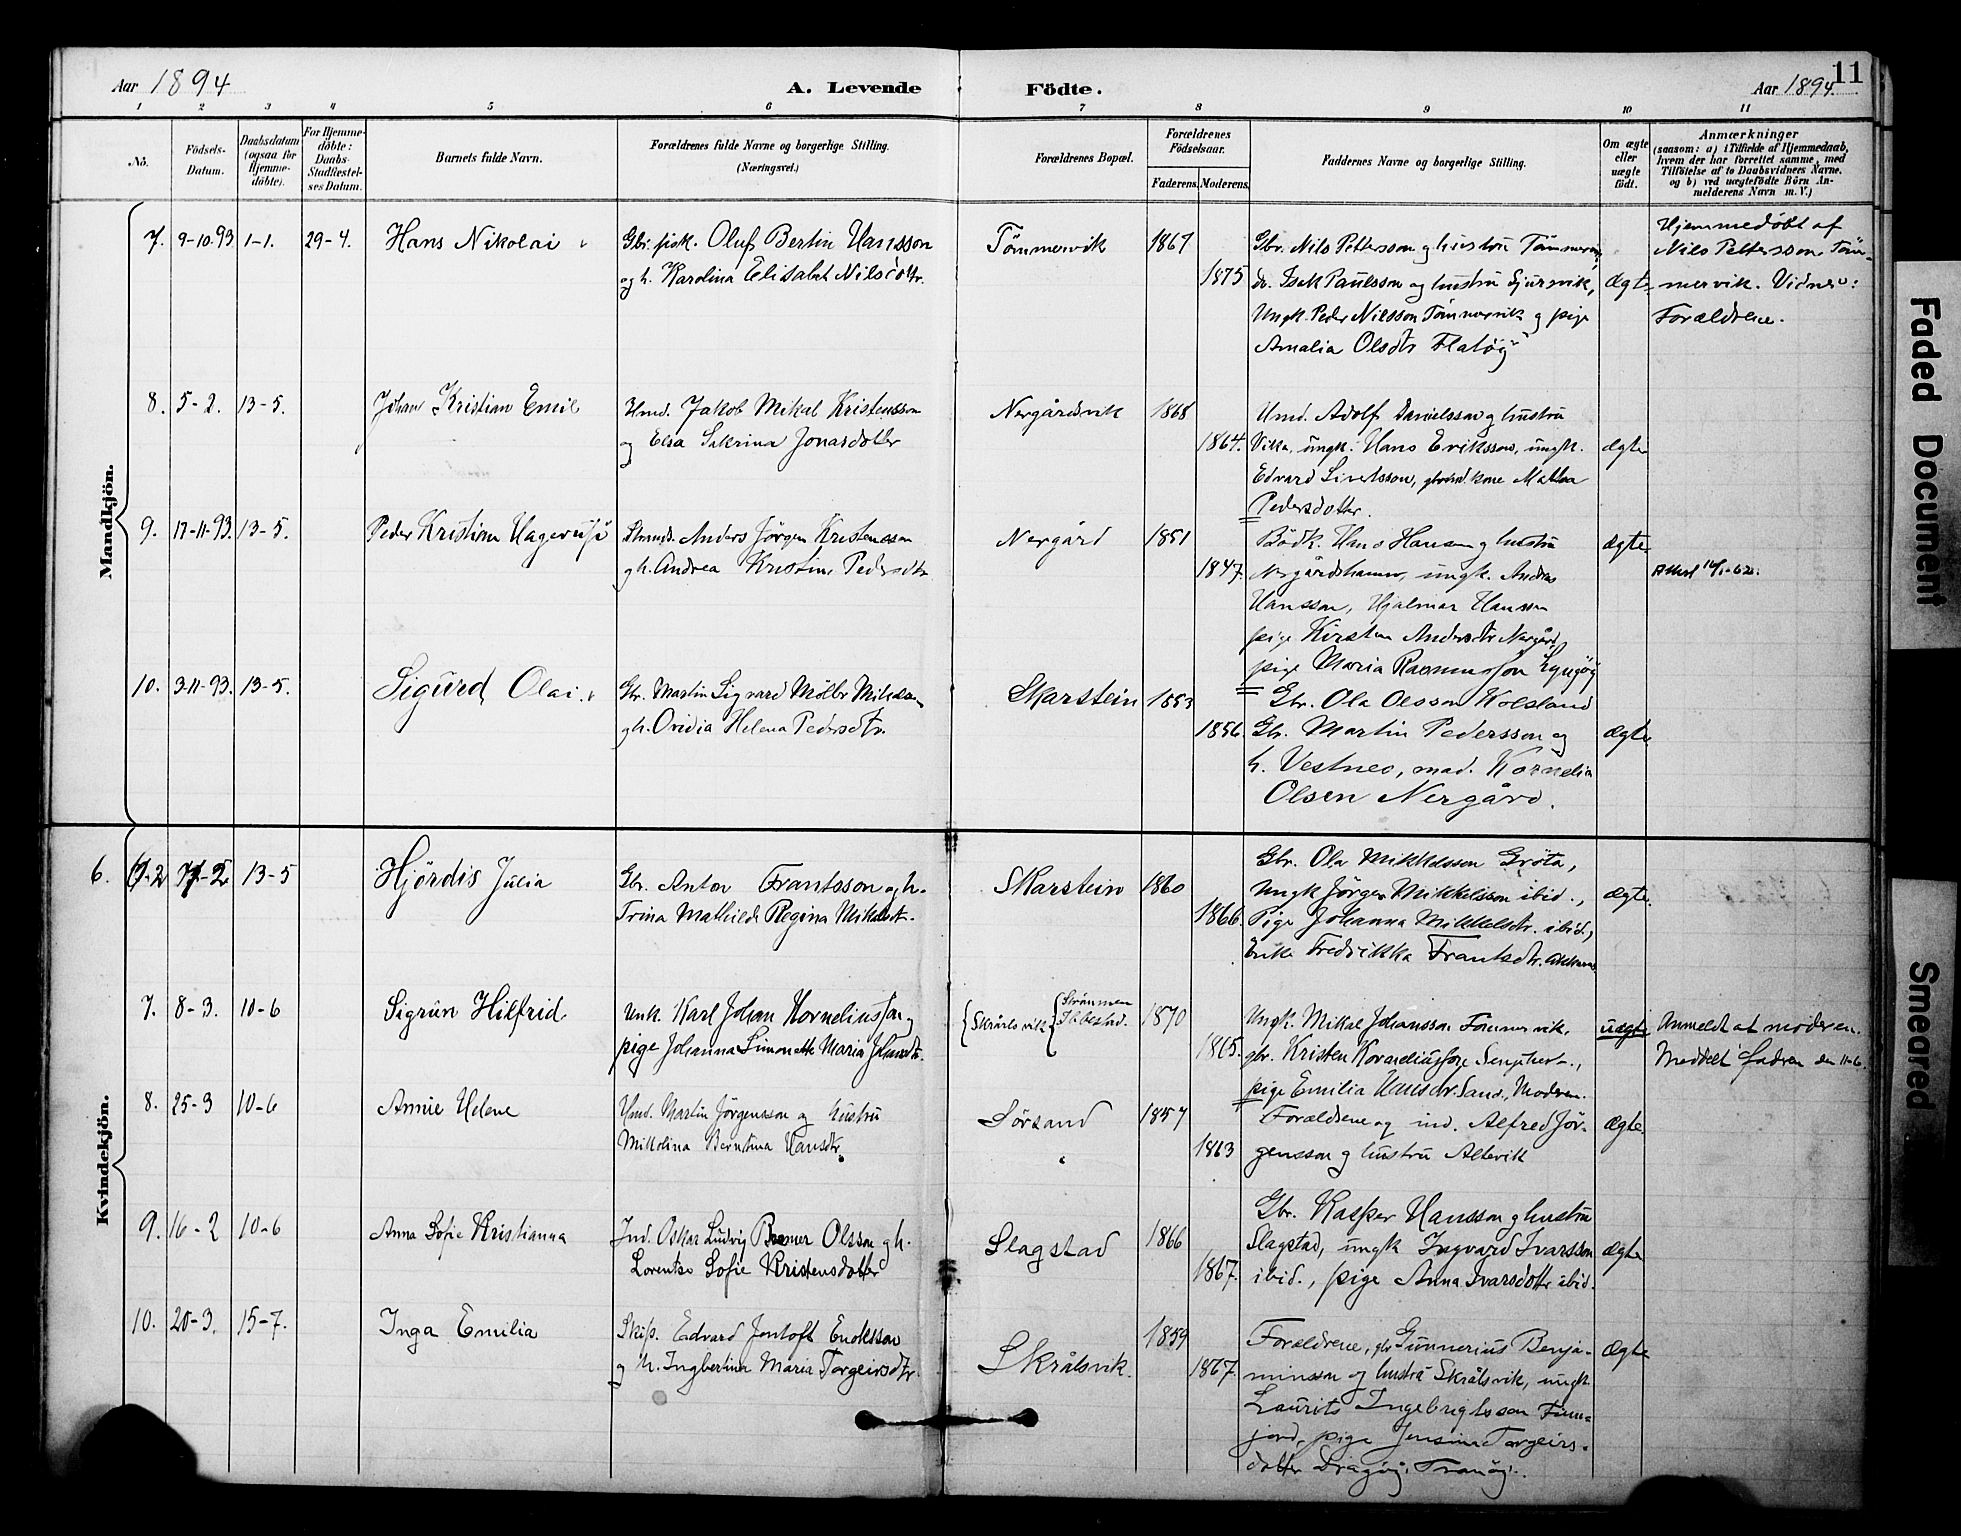 Aar 1894
A. Levende Födte.
Aar 1894.
11
1 2 3 4 5 6 7 8 9 10 11
No.
Födsels-
Datum.
Daabsdatum
(ogsaa for
Hjemme-
döbte).
For Hjemme-
döbte:
Daabs-
Stadfæstel-
ses Datum.
Barnets fulde Navn.
Forældrenes fulde Navne og borgerlige Stilling.
(Næringsvei.)
Forældrenes Bopæl.
Forældrenes
Födselsaar.
Faderens. Moderens.
Faddernes Navne og borgerlige Stilling.
Om ægte
eller
uægte
födt.
Anmærkninger
(saasom: a) i Tilfælde af Hjemmedaab,
hvem der har forrettet samme, med
Tilföielse af to Daabsvidners Navne.
og b) ved uægtefödte Börn An-
melderens Navn m. V.)
Mandkjön.
7. 9-10.93 1-1. 29-4. Hans Nikolai
Gbr. fisk. Oluf Bertin Hansson
og h. Karolina Elisabet Nilsdotr.
Tömmervik 1867
1875
Gbr. Nils Pettersson og hustru Tömmervik,
do. Isak Paulsson og hustru Gjursvik,
Ungk. Peder Nilsson Tömmervik og pige
Amalia Olsdtr Flatöy
ægte
Hjemmedöbt af
Nils Pettersson Töm-
mervik. Vidner:
Forældrene.
8. 5-2. 13-5. Johan Kristian Emil
Hmd. Jakob Mikal Kristensson
og Elsa Sakrina Jonasdotter
Nergårdsvik 1868
1864.
Hmd. Adolf Danielsson og hustru
Vika, ungk. Hans Eriksson, ungk.
Edvard Sivertsson, kone
Pedersdotter.
ægte
9. 17-11-93. 13-5. Peder Kristian Hagerup
Anders Jörgen Kristensson
og h. Andrea Kristine Pedersdtr
Nergård 1851
1847.
Bödk. Hans Hansen og hustru
Nergårdshamn, ungk. Andreas
Hansson, Hjalmar Hansson
pige Kirstina Andersdtr Nergård,
pige Maria Rasmusson
ægte
Attest 16/1-62.
10. 3-11-93. 13-5. Sigurd Olai.
Gbr. Martin Sigvard Mölbr
og h. Ovidia Helena Pedersdtr.
Skarstein 1853
1856.
Gbr. Ola Olsson Kolsland
Gbr. Martin Pedersson og
h. Vestnes, mad. Kornelia
Olsen Nergård.
ægte
Kvindekjön.
6. 13-5 Hjördis Julia
Gbr. Anton Frantsson og h.
Trina Mathilde Regina Mikalsdtr.
Skarstein 1860
1866.
Gbr. Ola Mikkelsson Gröta,
Ungk Jörgen Mikkelsson ibid.,
Pige Johanna Mikkelsdtr. ibid.,
Enke Fredrikka Frantsdtr.
ægte.
7. 8-3. 10-6 Sigrun Hilfrid
Unk. Karl Johan Korneliusson og
pige Johanna Simonette Maria Johansdtr.
Skrålsvik Strömmen
Ibbestad. 1870
1865.
Ungk. Mikal Johansson Tömmervik,
gbr. Kristen Korneliusson
pige Emilia Hansdtr. Sand, Moderen.
uægte
Anmeldt af moderen.
Meddelt fadren den 11-6.
8. 25-3 10-6 Annie Helene
Hmd. Martin Jörgensson og hustru
Mikolina Berntina Hansdtr.
Sörsand 1857
1863
Forældrene og ind. Alfred Jör-
gensson og hustru Altevik
ægte.
9. 16-2 10-6 Anna Sofie Kristianna
Ind. Oskar Ludvig Olsson og h.
Lorentse Sofie Kristensdotter
Slagstad 1866
1867.
Gbr. Kasper Hansson og hustru
Slagstad, ungk Ingvard Ivarsson
ibid., pige Anna Ivarsdotter ibid.
ægte
10. 20-3. 15-7. Inga Emilia
Skip. Edvard Jentoft Enoksson
og h. Ingbertina Maria Torgeirsdtr.
Skrålsvik. 1859
1867.
Forældrene, gbr Gunnerius Benja-
minsson og hustru Skrålsvik, ungk
Laurits Ingebrigtsson Finn-
jord, pige Jensina Torgeirs-
dotter Dragöy, Tranöy.
ægte
Faded Document
Smeared